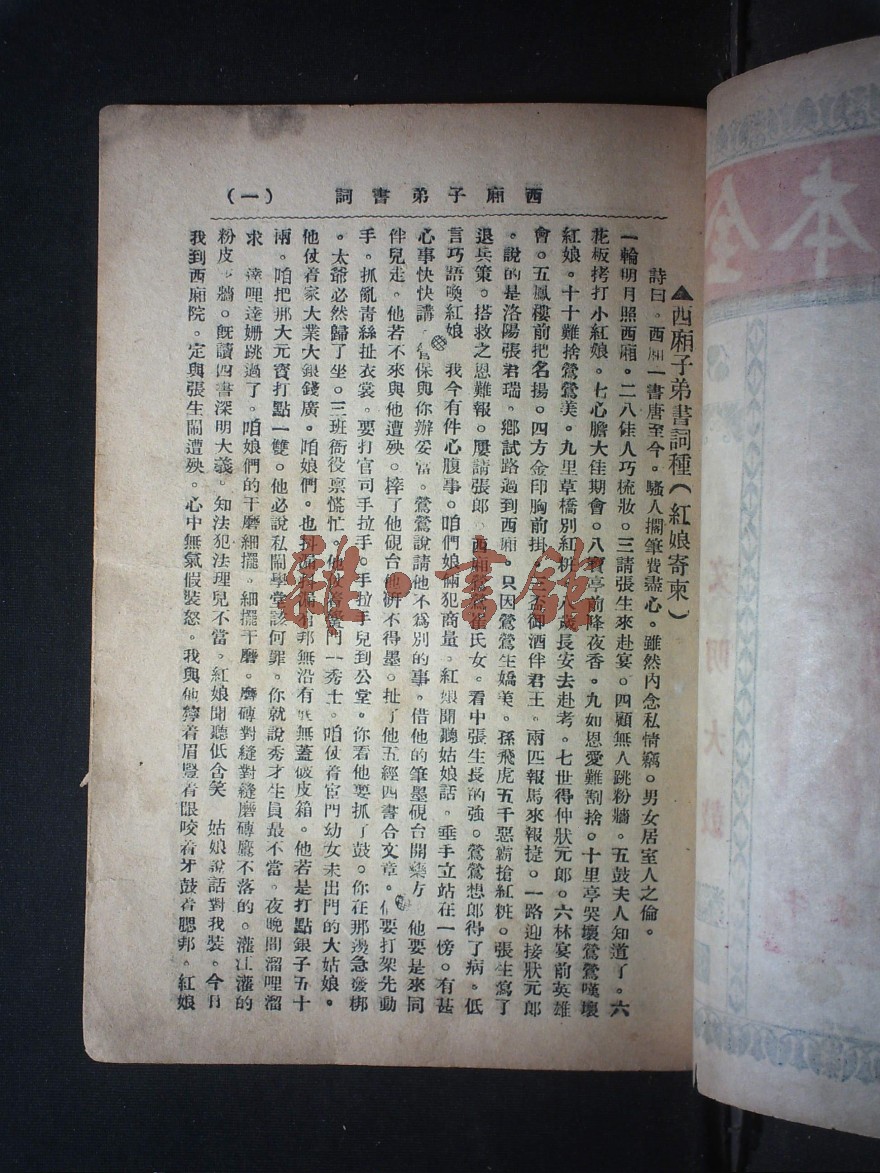 西廂子弟書詞 (一)
▲西廂子弟書詞種(紅娘寄柬)
詩曰。西廂一書唐至今。騷人擱筆費盡心。雖然內念私情竊。男女居室人之倫。
一輪明月照西廂。二八佳人巧梳妝。三請張生來赴宴。四顧無人跳粉牆。五鼓夫人知道了。六
花板拷打小紅娘。七心膽大佳期會。八寶亭前降夜香。九如恩愛難割捨。十里亭哭壞鶯鶯嘆壞
紅娘。十十難捨鶯鶯美。九里草橋別紅粧。八歲長安去赴考。七世得仲狀元郎。六林宴前英雄
會。五鳳樓前把名揚。四方金印胸前掛。三盃御酒伴君王。兩匹報馬來報捷。一路迎接狀元郎
。說的是洛陽張君瑞。鄉試路過到西廂。只因鶯鶯生嬌美。孫飛虎五千惡霸搶紅粧。張生寫了
退兵策。搭救之恩難報。屢請張郎。西廂鶯鶯崔氏女。看中張生長的強。鶯鶯想郎得了病。低
言巧語喚紅娘 我今有件心腹事。咱們娘倆犯商量。紅娘聞聽姑娘話。垂手立站在一傍。有甚
心事快快講 管保與你辦妥當。鶯鶯說請他不爲別的事。借他的筆墨硯台開藥方 他要是來同
伴兒走。他若不來與他遭殃。摔了他硯台他研不得墨。扯了他五經四書合文章。他要打架先動
手。抓亂青絲扯衣裳。要打官司手拉手。手拉手兒到公堂。你看他要抓了鼓。你在那邊急發梆
。太爺必然歸了坐。三班衙役禀慌忙。他仗着黌門一秀士。咱仗着官門幼女未出門的大姑娘。
他仗着家大業大銀錢廣。咱娘們。也有無沿有底無蓋破皮箱。他若是打點銀子五十
兩。咱把那大元寶打點一雙。他必說私鬧學堂該何罪。你就說秀才生員最不當。夜晚間溜哩溜
求 達哩達姍跳過了。咱娘們的干磨細擺。細擺干磨。磨磚對縫對縫磨磚鷹不落的。灌江灌的
粉皮。牆。旣讀四書深明大義。知法犯法理兒不當。紅娘聞聽低含笑 姑娘說話對我裝。今日
我到西廂院。定與張生鬧遭殃。心中無氣假裝怒。我與他擰着眉豎着眼咬着牙鼓着腮邦。紅娘
雜·書館
全本
文明大鼓